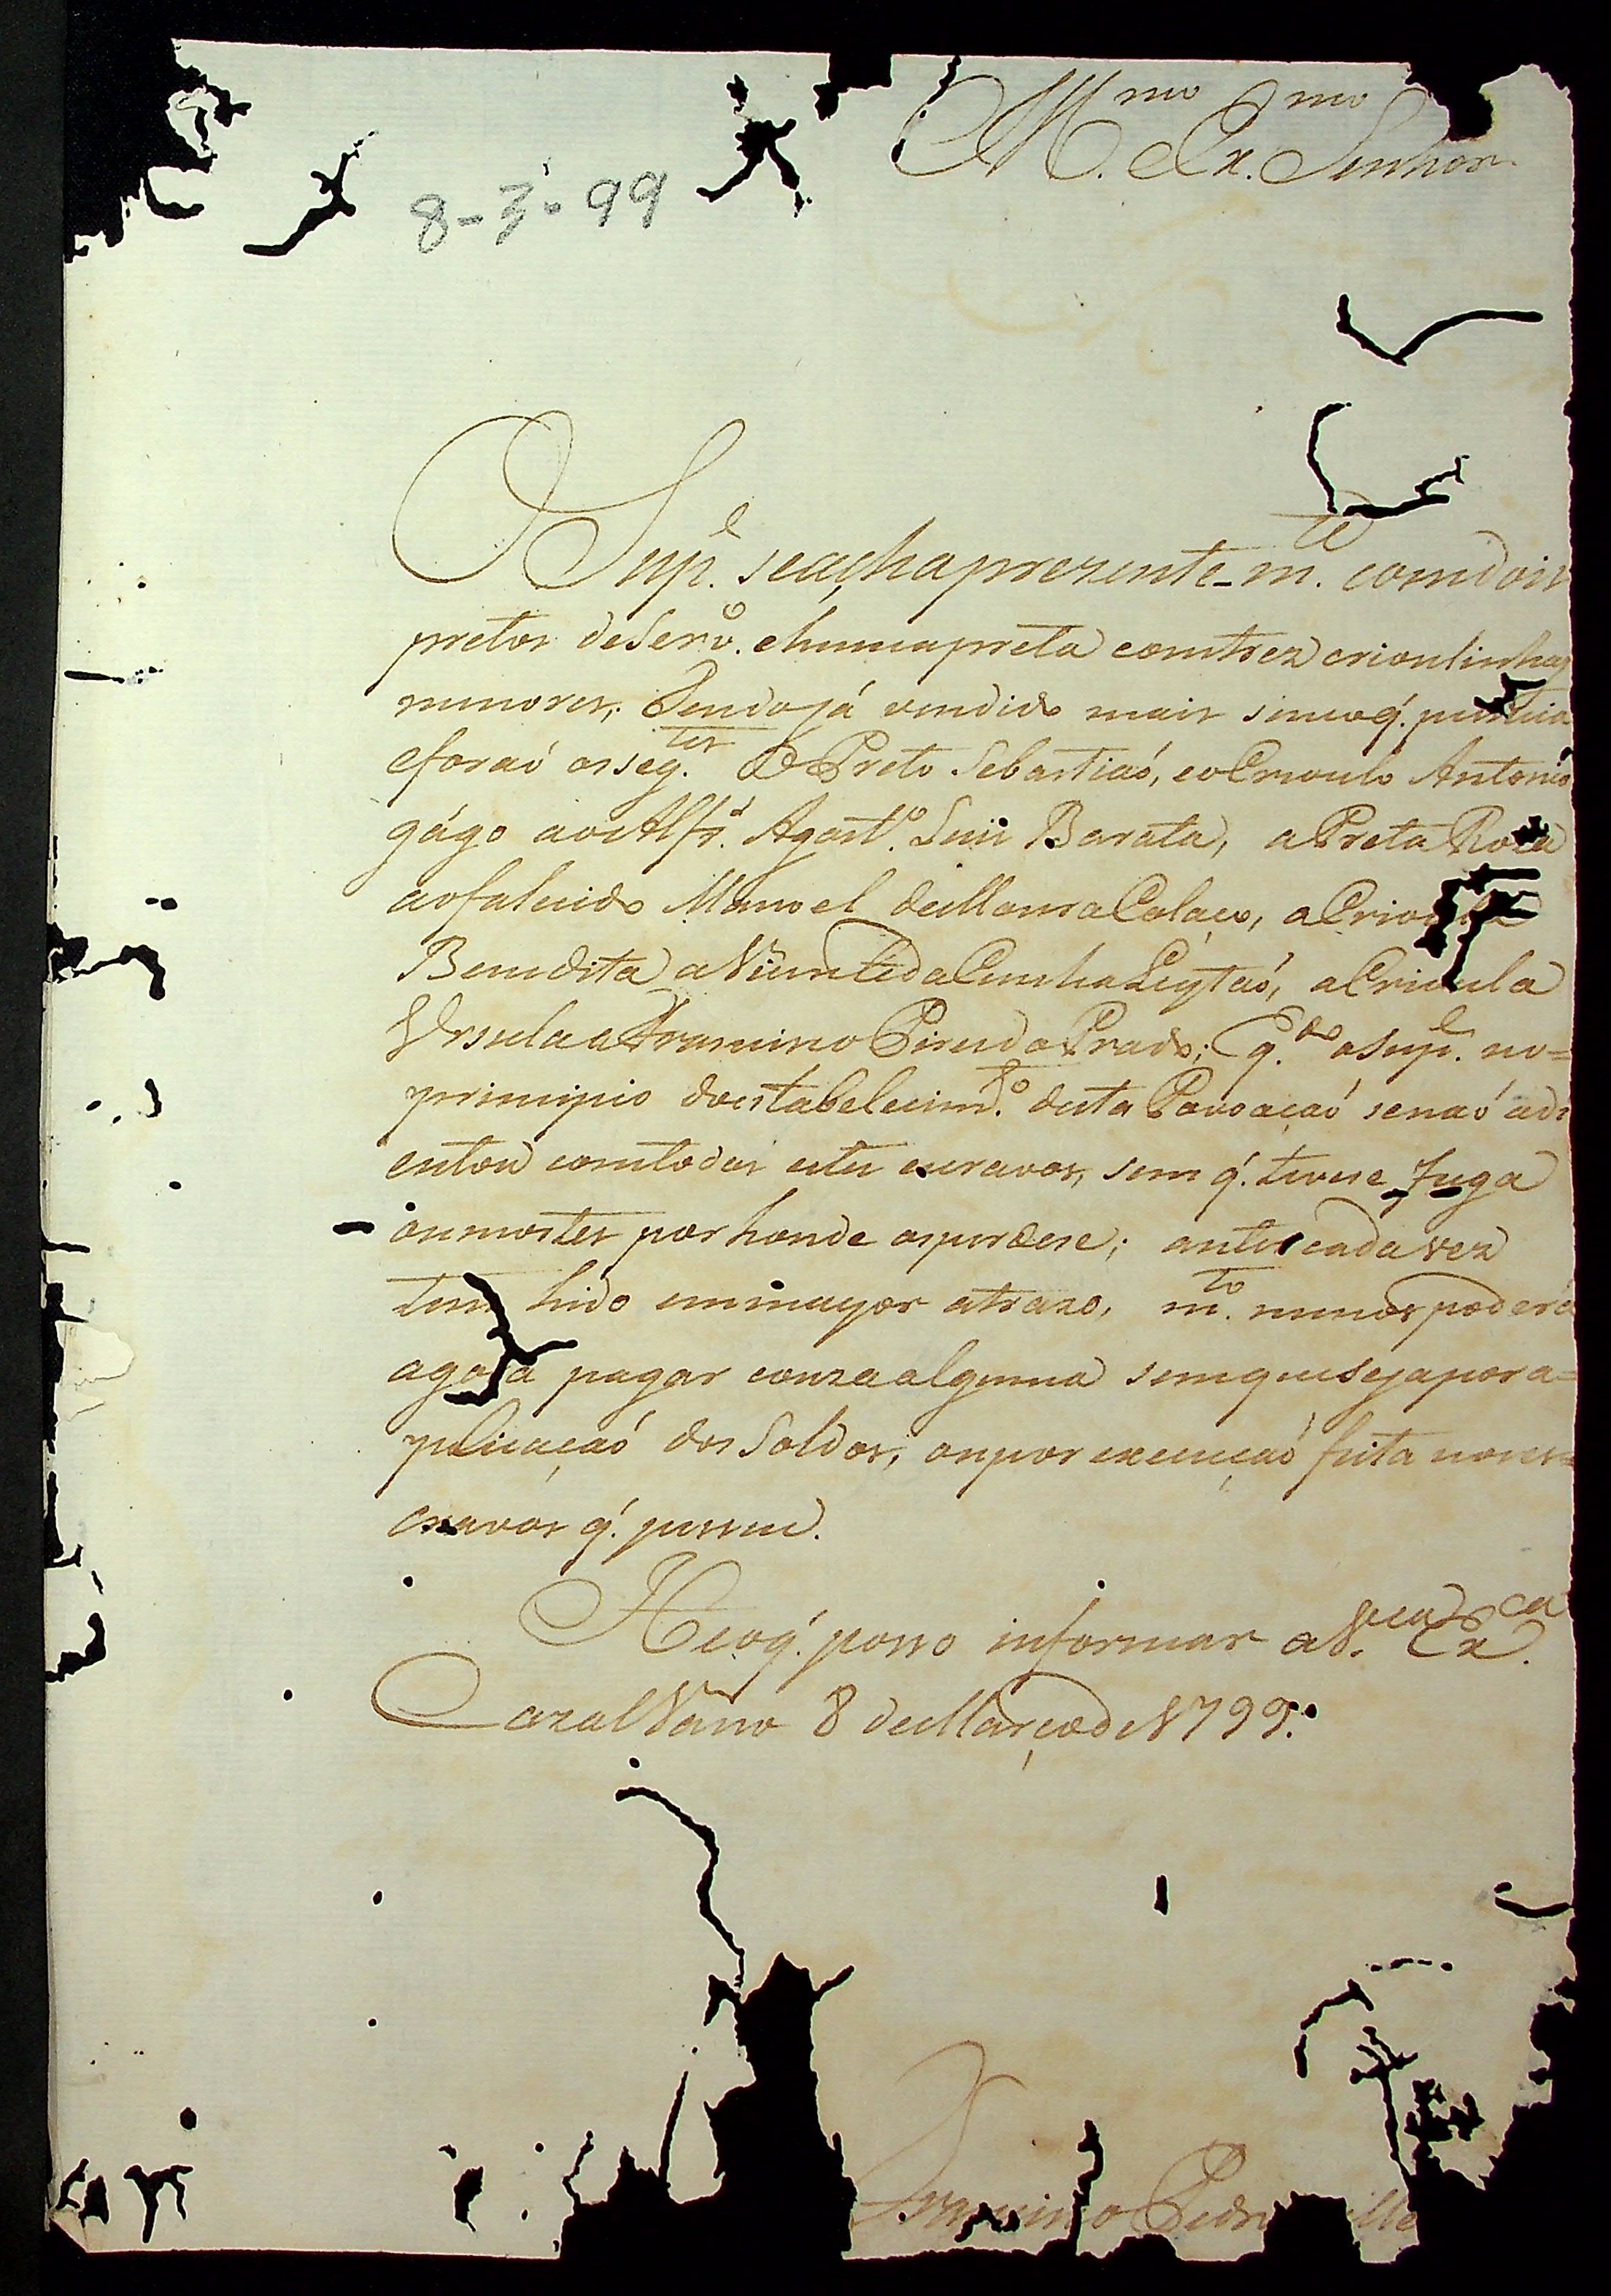 Ill.mo Ex.mo Senhor.
8-3-99
O Sup.e se acha prezente-m.te com dois
pretos de Serv.o e huma preta com trez crioulinhas
menores; Tendo já vendido mais sinco q.
e foraó os seg.tes O Preto Sebastiaó, e o Crioulo Antonio
gágo ao Alfs. Agost.o Luis Barata, a Preta Roza
ao falecido Manoel de Moura Colaço, a Crioula
Benedita a Vicente da Cunha, a Crioula
Ursula a Francisco Pires do Prado; q.do o Sup.e no=
principio do estabelecim.to desta Povoaçaó senaó adi
entou com todos estes escravos, sem q. tivese fuga
ou mortes por honde os perdese; antes cada vez
tem hido em mayor atrazo, m.to menos poderá
agora pagar couza alguma sem que seja por a=
plicaçaó dos Soldos, ou por execuçaó feita nos es=
cravos q. possue.
He o q. posso informar a V.ca Ex.ca
Cazal Vasco 8 de Março de 1799.
Francisco Pedro